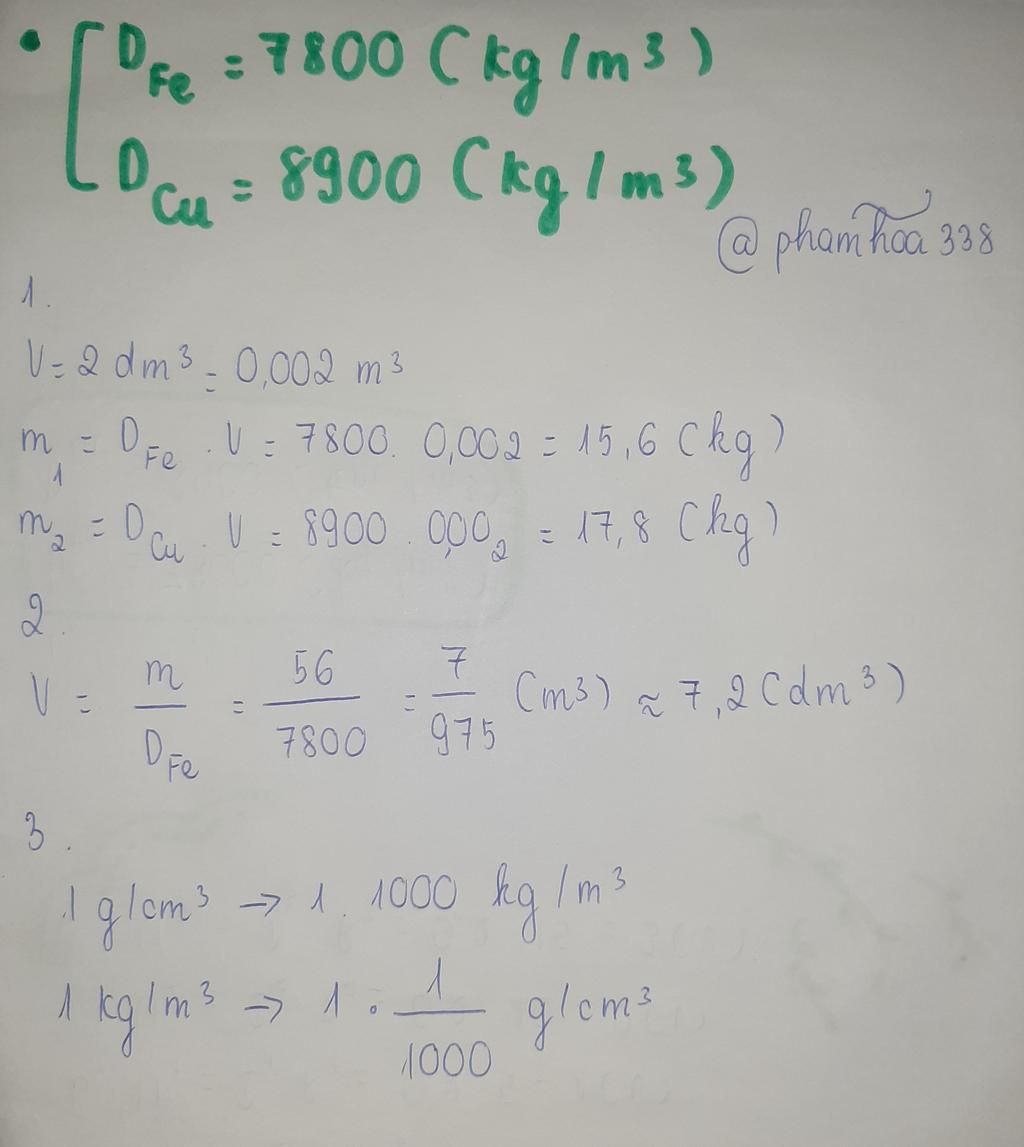 • [ D_Fe = 7800 (kg/m³)
D_Cu = 8900 (kg/m³)
@phamhoa338
1.
V = 2 dm³ = 0,002 m³
m₁ = D_Fe . V = 7800. 0,002 = 15,6 (kg)
m₂ = D_Cu . V = 8900 . 0,002 = 17,8 (kg)
2.
V = m/D_Fe = 56/7800 = 7/975 (m³) ≈ 7,2 (dm³)
3.
1 g/cm³ → 1. 1000 kg/m³
1 kg/m³ → 1 . 1/1000 g/cm³